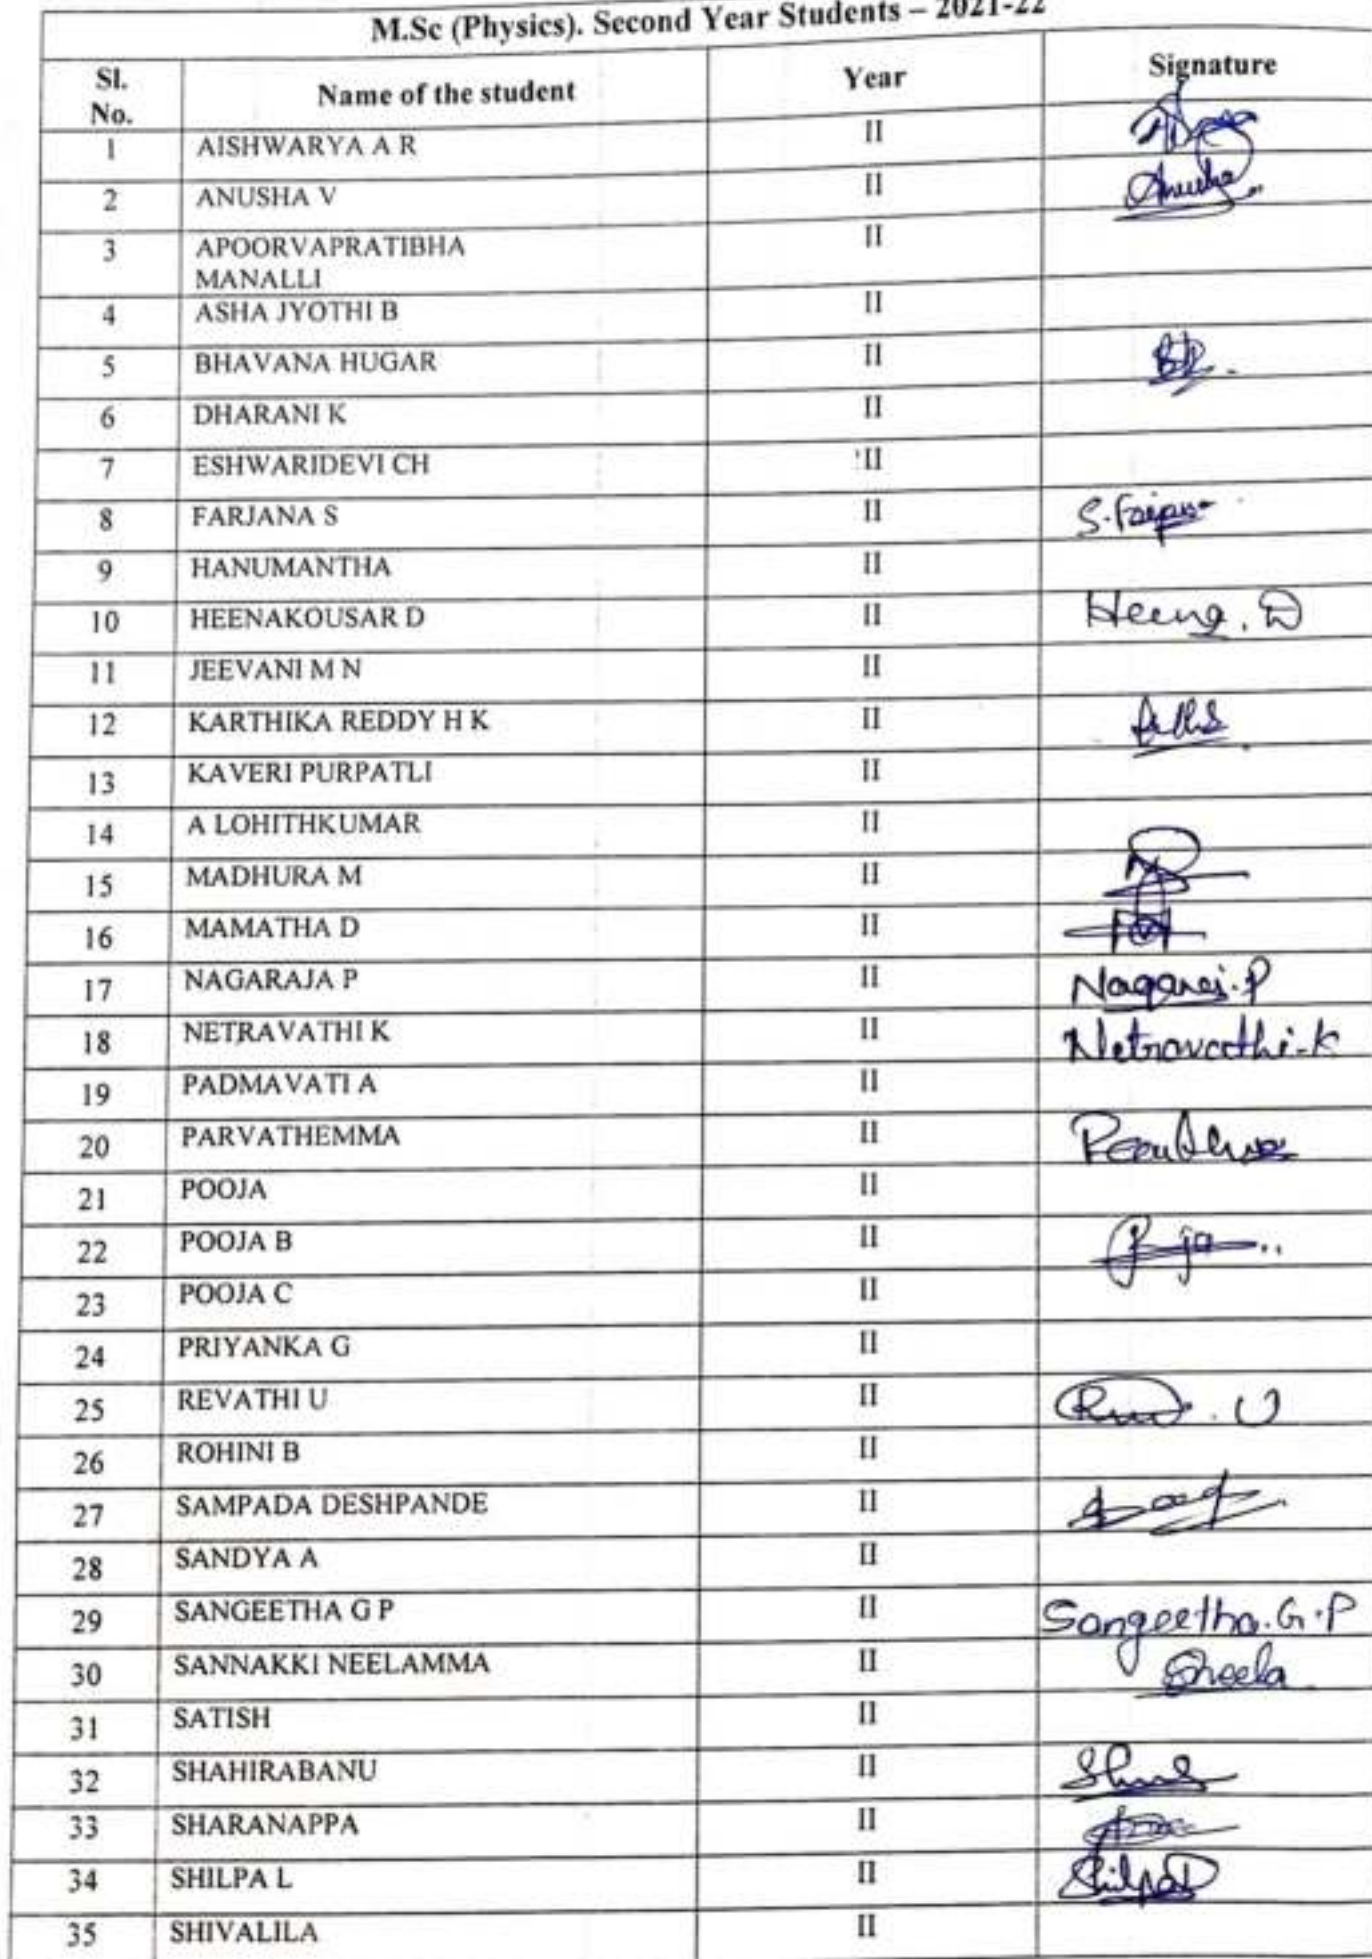 M.Sc (Physics). Second Year Students – 2021-22
Sl. No. Name of the student Year Signature
1 AISHWARYA A R II
2 ANUSHA V II Anusha
3 APOORVAPRATIBHA II
MANALLI
4 ASHA JYOTHI B II
5 BHAVANA HUGAR II
6 DHARANI K II
7 ESHWARIDEVI CH II
8 FARJANA S II
9 HANUMANTHA II
10 HEENAKOUSAR D II Heena. D
11 JEEVANI M N II
12 KARTHIKA REDDY H K II
13 KAVERI PURPATLI II
14 A LOHITHKUMAR II
15 MADHURA M II
16 MAMATHA D II
17 NAGARAJA P II Nagaraj.P
18 NETRAVATHI K II Netravathi-K
19 PADMAVATI A II
20 PARVATHEMMA II
21 POOJA II
22 POOJA B II
23 POOJA C II
24 PRIYANKA G II
25 REVATHI U II
26 ROHINI B II
27 SAMPADA DESHPANDE II
28 SANDYA A II
29 SANGEETHA G P II Sangeetha.G.P
30 SANNAKKI NEELAMMA II Sneela
31 SATISH II
32 SHAHIRABANU II
33 SHARANAPPA II
34 SHILPA L II
35 SHIVALILA II